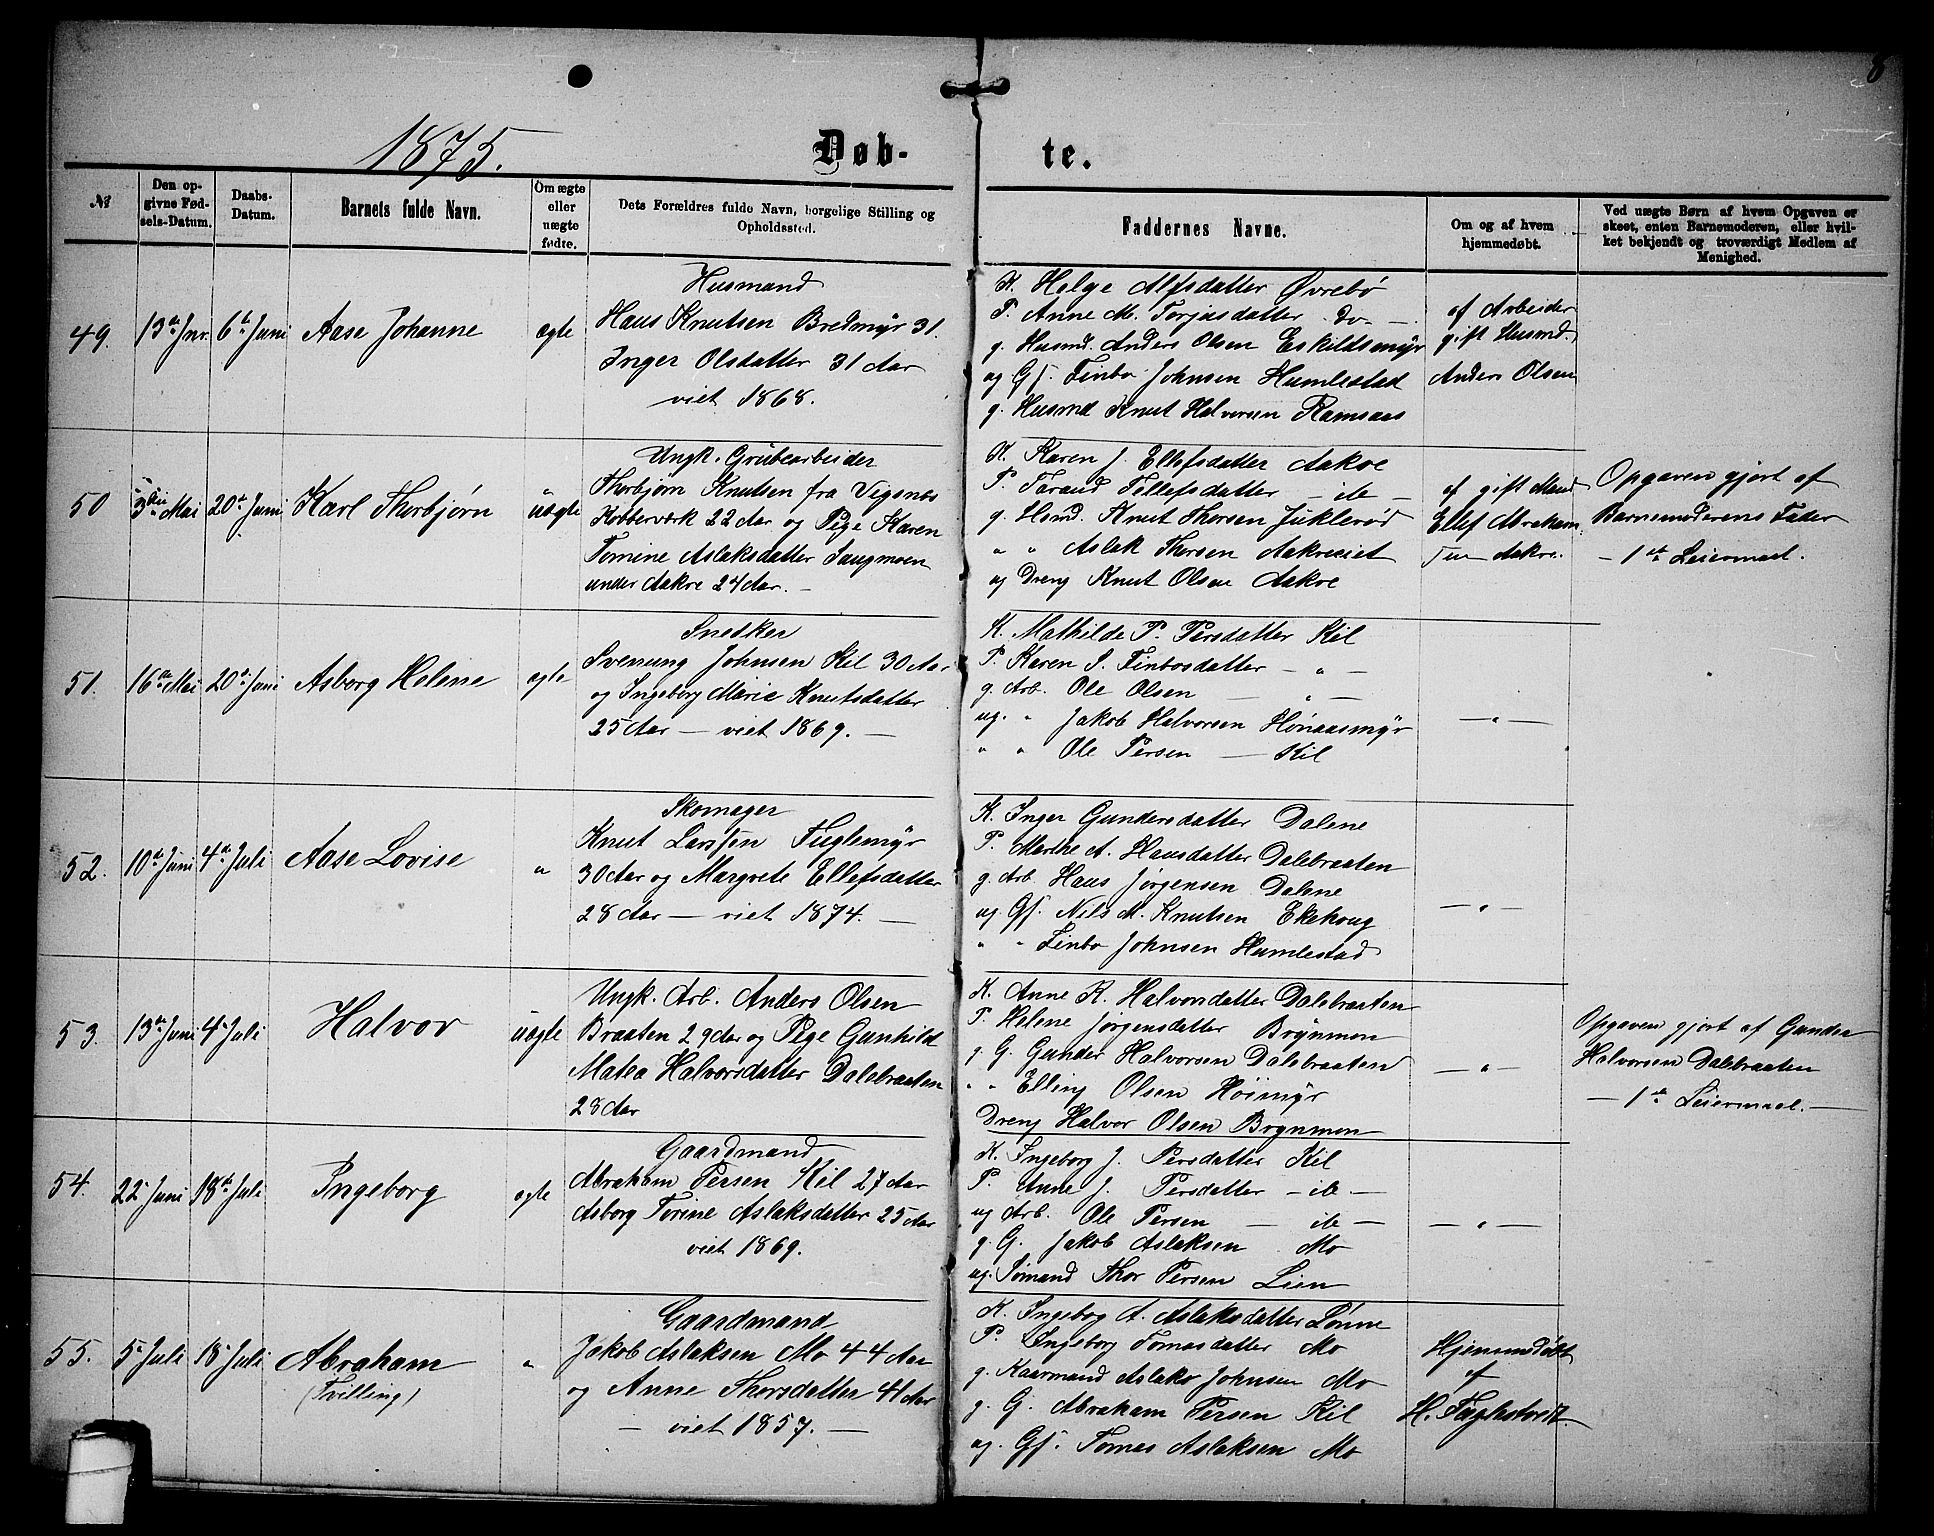 8
1875.
Døb-
te.
№
Den op-
givne Fød-
sels-Datum.
Daabs-
Datum.
Barnets fulde Navn.
Om ægte
eller
uægte
fødte.
Dets Forældres fulde Navn, borgelige Stilling og
Opholdssted.
Faddernes Navne.
Om og af hvem
hjemmedøbt.
Ved uægte Børn af hvem Opgaven er
skeet, enten Barnemoderen, eller hvil-
ket bekjendt og troværdigt Medlem af
Menighed.
49. 13de Jnr. 6te Juni Aase Johanne ægte
Husmand
Hans Knutsen Bredmyr 31.
Inger Olsdatter 31 Aar
viet 1868.
K. Helge Alfsdatter Øvrebö
P. Anne M. Torjusdatter do
g. Husmd. Anders Olsen Eskildsmyr
ug Gf. Finbo Johnsen Humlestad
g. Husmd Knut Halvorsen Ramsaas
af Arbeider
gift Husmd.
Anders Olsen
50 3die Mai 20de Juni Karl Thorbjørn uægte
Ungk. Grubearbeider
Thorbjørn Knutsen fra Vigsnes
Kobberværk 22 Aar og Pige Karen
Tomine Aslaksdatter Saugmoen
under Aakre 24 Aar. —
K. Karen J. Ellefsdatter Aakre
P. Tarand Tellefsdatter — ib —
g. Hsmd. Knut Thorsen Juklerød
" " Aslak Thorsen Aakreeiet
ug Dreng Knut Olsen Aakre
af gift Mand
Ellef Abraham
sen Aakre.
Opgaven gjort af
Barnemoderens Fader
— 1ste Leiermaal.
51. 16de Mai 20de Juni Asborg Helene ægte
Snedker
Svenung Johnsen Kil 30 Aar
og Ingeborg Marie Knutsdatter
25 Aar — viet 1869. —
K. Mathilde P. Persdatter Kil
P. Karen S. Finbosdatter — " —
g. Arb. Ole Olsen — " —
ug. " Jakob Halvorsen Hønaasmyr
" " Ole Persen — Kil
— " —
52. 10de Juni 4de Juli Aase Lovise "
Skomager
Knut Larssen Fuglemyr
30 Aar og Margrete Ellefsdatter
28 Aar — viet 1874. —
K. Inger Gundersdatter Dalene
P. Marthe A. Hansdatter Dalebraaten
g. Arb. Hans Jørgensen Dalene
ug Gf. Nils M. Knutsen Ekehoug
" " Finbo Johnsen Humlestad
— " —
53. 13de Juni 4de Juli Halvor uægte
Ungk. Arb. Anders Olsen
Braaten 29 Aar og Pige Gunhild
Matea Halvorsdatter Dalebraaten
28 Aar
K. Anne K. Halvorsdatter Dalebraaten
P. Helene Jørgensdatter Brynmon
g. G. Gunder Halvorsen Dalebraaten
" " Elling Olsen Høimyr
Dreng Halvor Olsen Brynmon
— " —
Opgaven gjort af Gunder
Halvorsen Dalebraaten
— 1ste Leiermaal. —
54. 22 Juni 18de Juli Ingeborg ægte
Gaardmand
Abraham Persen Kil 27 Aar
Asborg Torine Aslaksdatter 25 Aar
viet 1869.
K. Ingeborg J. Persdatter Kil
P. Anne J. Persdatter — ib —
ug Arb. Ole Persen — ib —
g. G. Jakob Aslaksen Mo
ug. Sømand Thor Persen Lien
— " —
55. 5 Juli 18 Juli Abraham "
(Tvilling)
Gaardmand
Jakob Aslaksen Mo 44 Aar
og Anne Thorsdatter 41 Aar
— viet 1857. —
K. Ingebog A. Aslaksdatter Lønne
P. Ingeborg Tomasdatter Mo
g. Kaarmand Aslak Johnsen Mo
g. G. Abraham Persen Kil
ug. Gf. Tomas Aslaksen Mo
Hjemmedøbt
af
H.